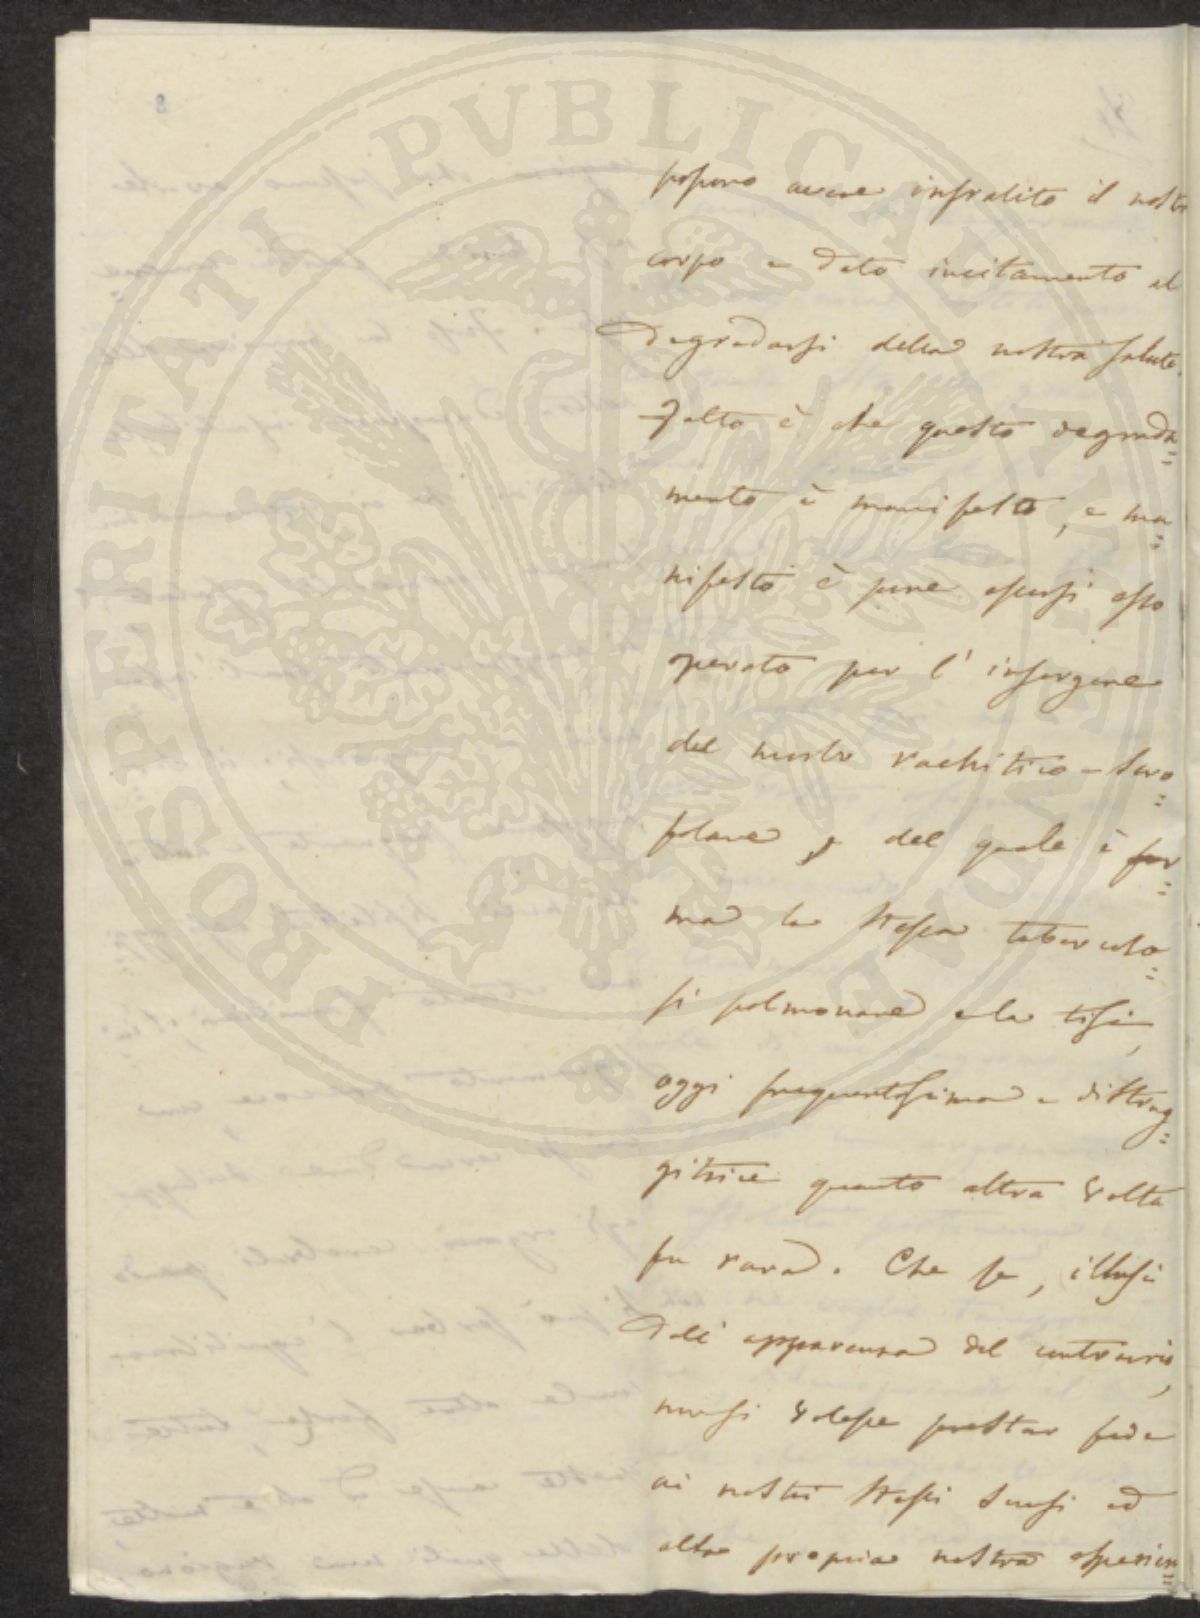 PROSPERITATI PVBLICAE AVGENDAE
8
possono avere infralito il nostro
corpo e dato incitamento al
degradarsi della nostra salute.
Fatto è che questo degrada=
mento è manifesto, e ma=
nifesto è pure essersi esso
operato per l' insorgere
del morbo rachitico-scro=
folare, del quale è for=
ma la stessa tubercolo=
si polmonare e la tisi,
oggi frequentissima e distrug=
gitrice quanto altra volta
fu rara. Che se, illusi
dall' apparenza del contrario,
non si volesse prestar fede
ai nostri stessi sensi ed
alla propria nostra esperien=